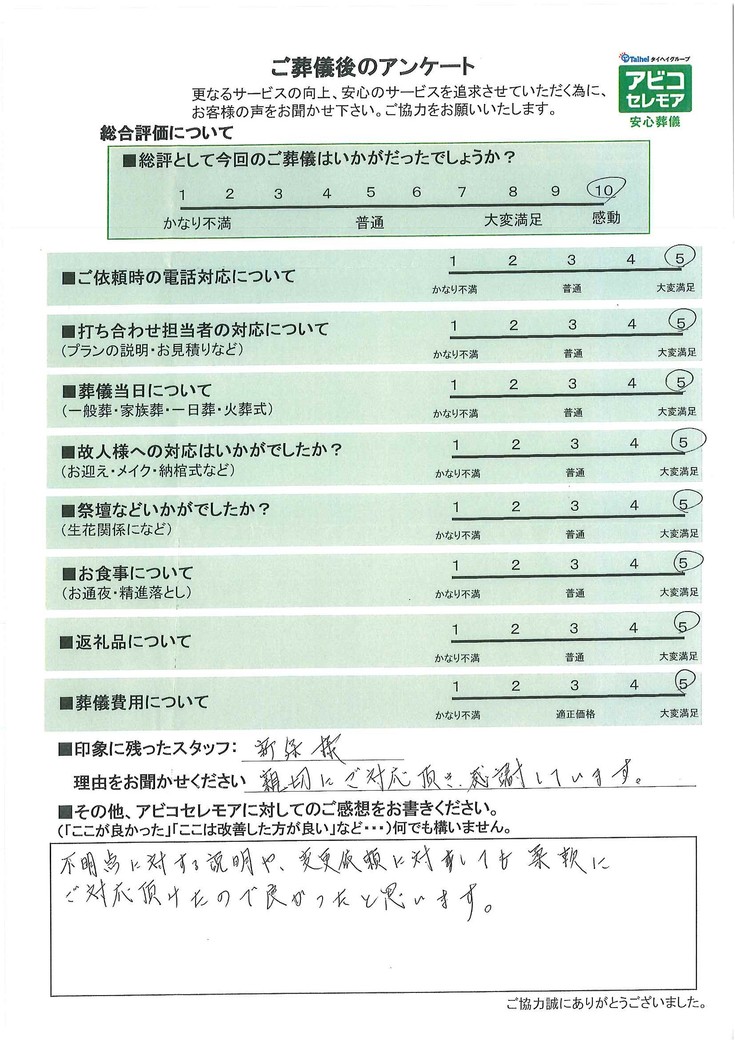 ご葬儀後のアンケート
Taihei タイヘイグループ
アビコ
セレモア
安心葬儀
更なるサービスの向上、安心のサービスを追求させていただく為に、
お客様の声をお聞かせ下さい。ご協力をお願いいたします。
総合評価について
■総評として今回のご葬儀はいかがだったでしょうか？
1 2 3 4 5 6 7 8 9 10
かなり不満 普通 大変満足 感動
■ご依頼時の電話対応について
1 2 3 4 5
かなり不満 普通 大変満足
■打ち合わせ担当者の対応について
(プランの説明・お見積りなど)
1 2 3 4 5
かなり不満 普通 大変満足
■葬儀当日について
(一般葬・家族葬・一日葬・火葬式)
1 2 3 4 5
かなり不満 普通 大変満足
■故人様への対応はいかがでしたか？
(お迎え・メイク・納棺式など)
1 2 3 4 5
かなり不満 普通 大変満足
■祭壇などいかがでしたか？
(生花関係になど)
1 2 3 4 5
かなり不満 普通 大変満足
■お食事について
(お通夜・精進落とし)
1 2 3 4 5
かなり不満 普通 大変満足
■返礼品について
1 2 3 4 5
かなり不満 普通 大変満足
■葬儀費用について
1 2 3 4 5
かなり不満 適正価格 大変満足
■印象に残ったスタッフ： 新保様
理由をお聞かせください 親切にご対応頂き、感謝しています。
■その他、アビコセレモアに対してのご感想をお書きください。
(「ここが良かった」「ここは改善した方が良い」など・・・)何でも構いません。
不明点に対する説明や、変更依頼に対しても柔軟に
ご対応頂けたので良かったと思います。
ご協力誠にありがとうございました。